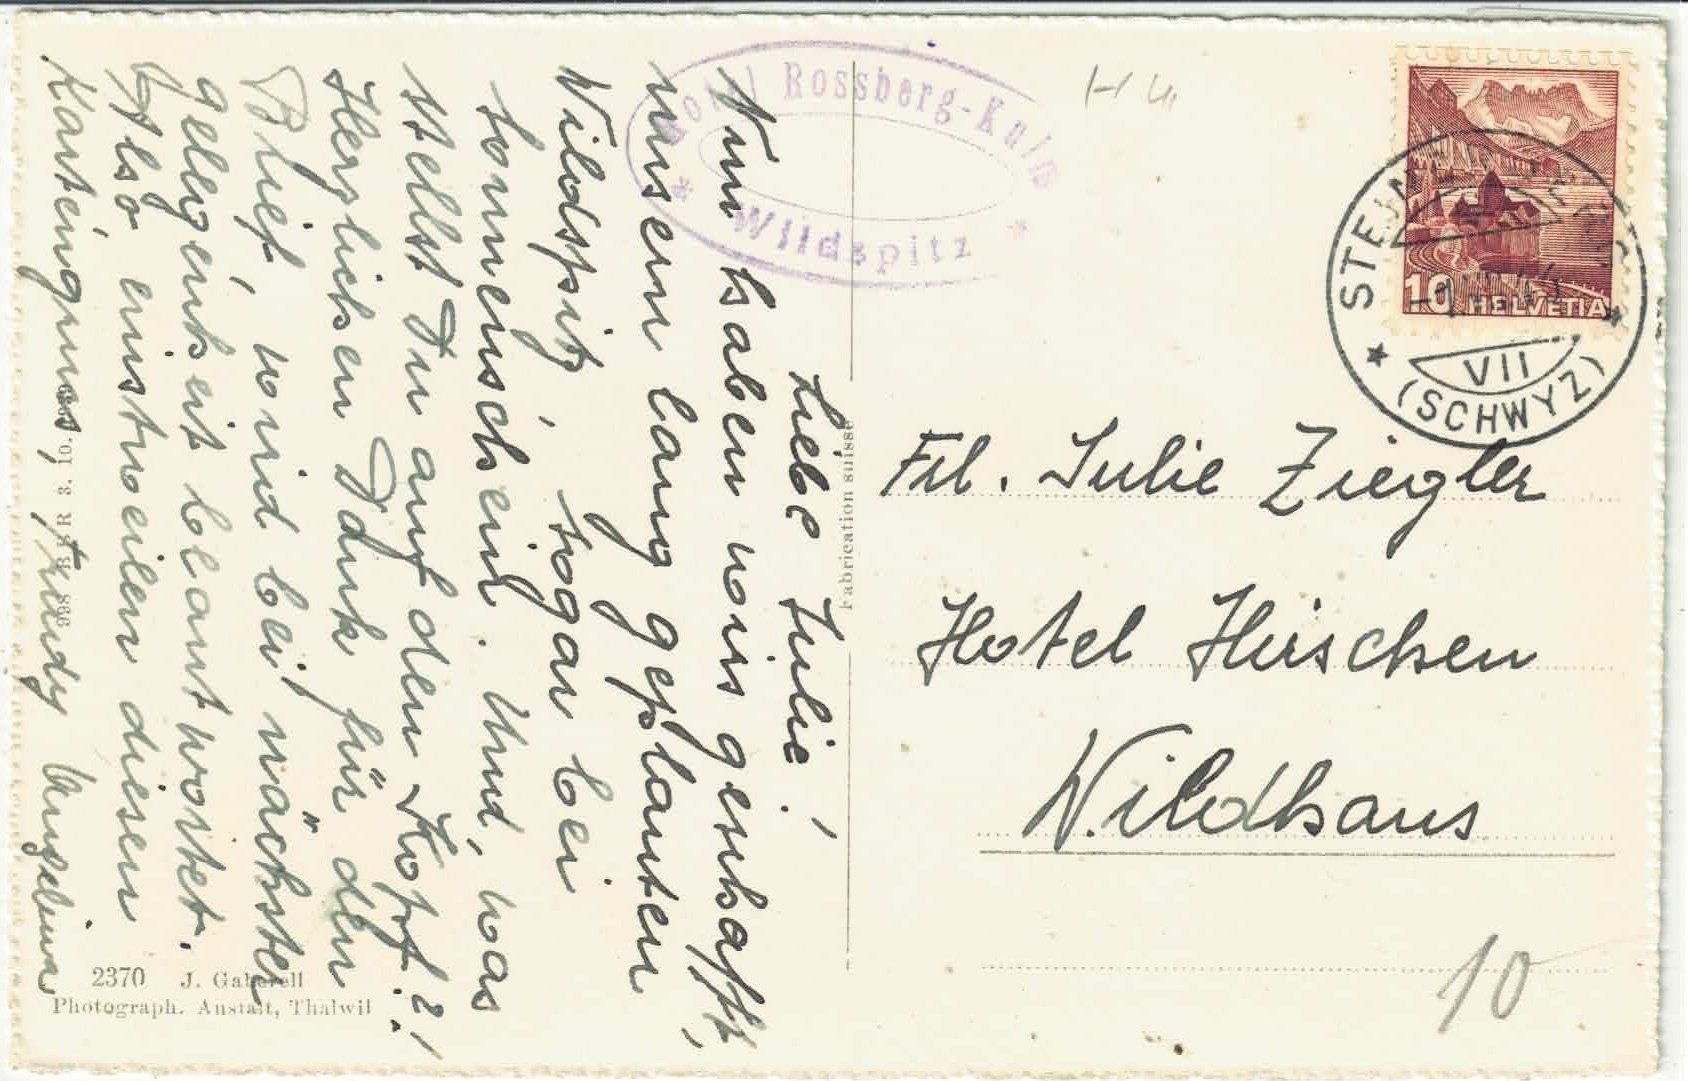 Liebe Julie!
Nun haben wir's geschafft,
unsern lang geplanten
Wildspitz, sogar bei
Sonnenschein. Und, was
stellst Du auf den Kopf?!
Herzlichen Dank für den
Brief, wird bei nächster
Gelegenheit beantwortet.
Also einstweilen diesen
Kartengruss, Trudy
Hotel Rossberg-Kulm
* Wildspitz *
H
Fabrication suisse
10 HELVETIA
VII
(SCHWYZ)
Frl. Julie Ziegler
Hotel Hirschen
Wildhaus
10
2370 J. Gaberell
Photograph. Anstalt, Thalwil